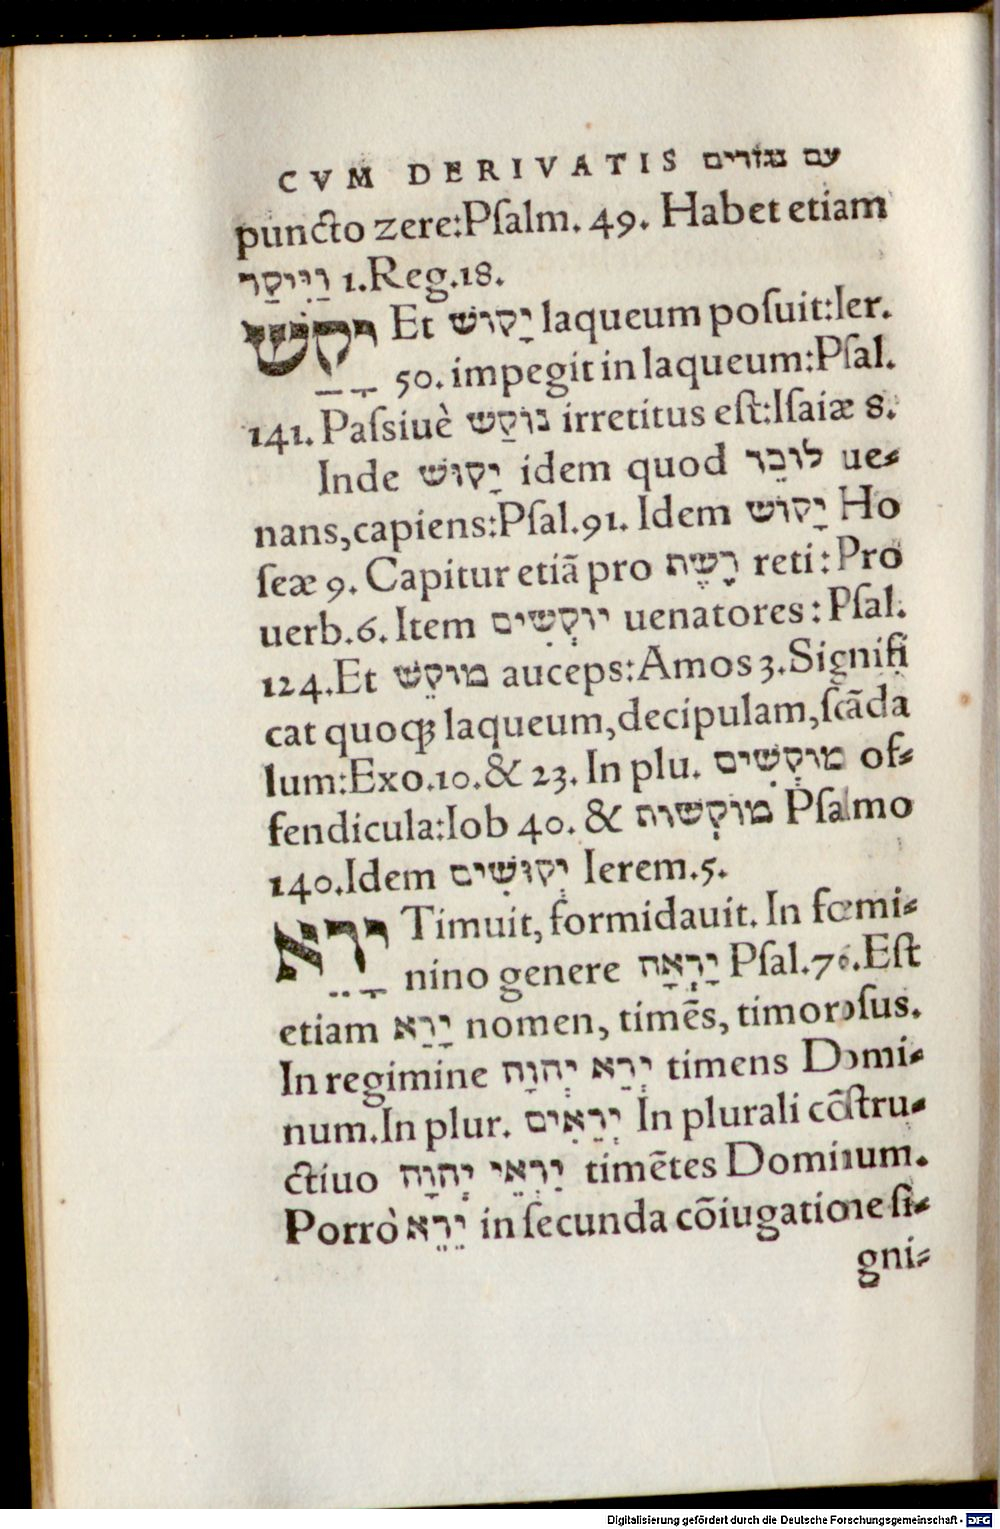 CVM DERIVATIS עם נגזרים
puncto zere:Pſalm. 49. Habet etiam
וַיִּיקַר 1.Reg.18.
יָקַשׁ Et יָקוֹשׁ laqueum poſuit:Ier.
50. impegit in laqueum:Pſal.
141. Paſsiuè נוֹקַשׁ irretitus eſt:Iſaiæ 8.
Inde יָקוּשׁ idem quod לוֹכֵד ue⸗
nans,capiens:Pſal.91. Idem יָקוֹשׁ Ho
ſeæ 9. Capitur etiã pro רָשֶׁת reti: Pro
uerb.6. Item יוֹקְשִׁים uenatores: Pſal.
124.Et מוֹקֵשׁ auceps:Amos 3.Signifi
cat quoqꝫ laqueum,decipulam,ſcãda
lum:Exo.10.& 23. In plu. מוֹקְשִׁים of⸗
fendicula:Iob 40. & מוֹקְשׁוֹת Pſalmo
140.Idem יְקוּשִׁים Ierem.5.
יָרֵא Timuit, formidauit. In fœmi⸗
nino genere יָרְאָה Pſal.76.Eſt
etiam יָרֵא nomen, timẽs, timoroſus.
In regimine יְרֵא יְהוָה timens Domi⸗
num.In plur. יְרֵאִים In plurali cõſtru⸗
ctiuo יִרְאֵי יְהוָה timẽtes Dominum.
Porrò יֵרֵא in ſecunda cõiugatione ſi⸗
gni⸗
Digitalisierung gefördert durch die Deutsche Forschungsgemeinschaft - DFG